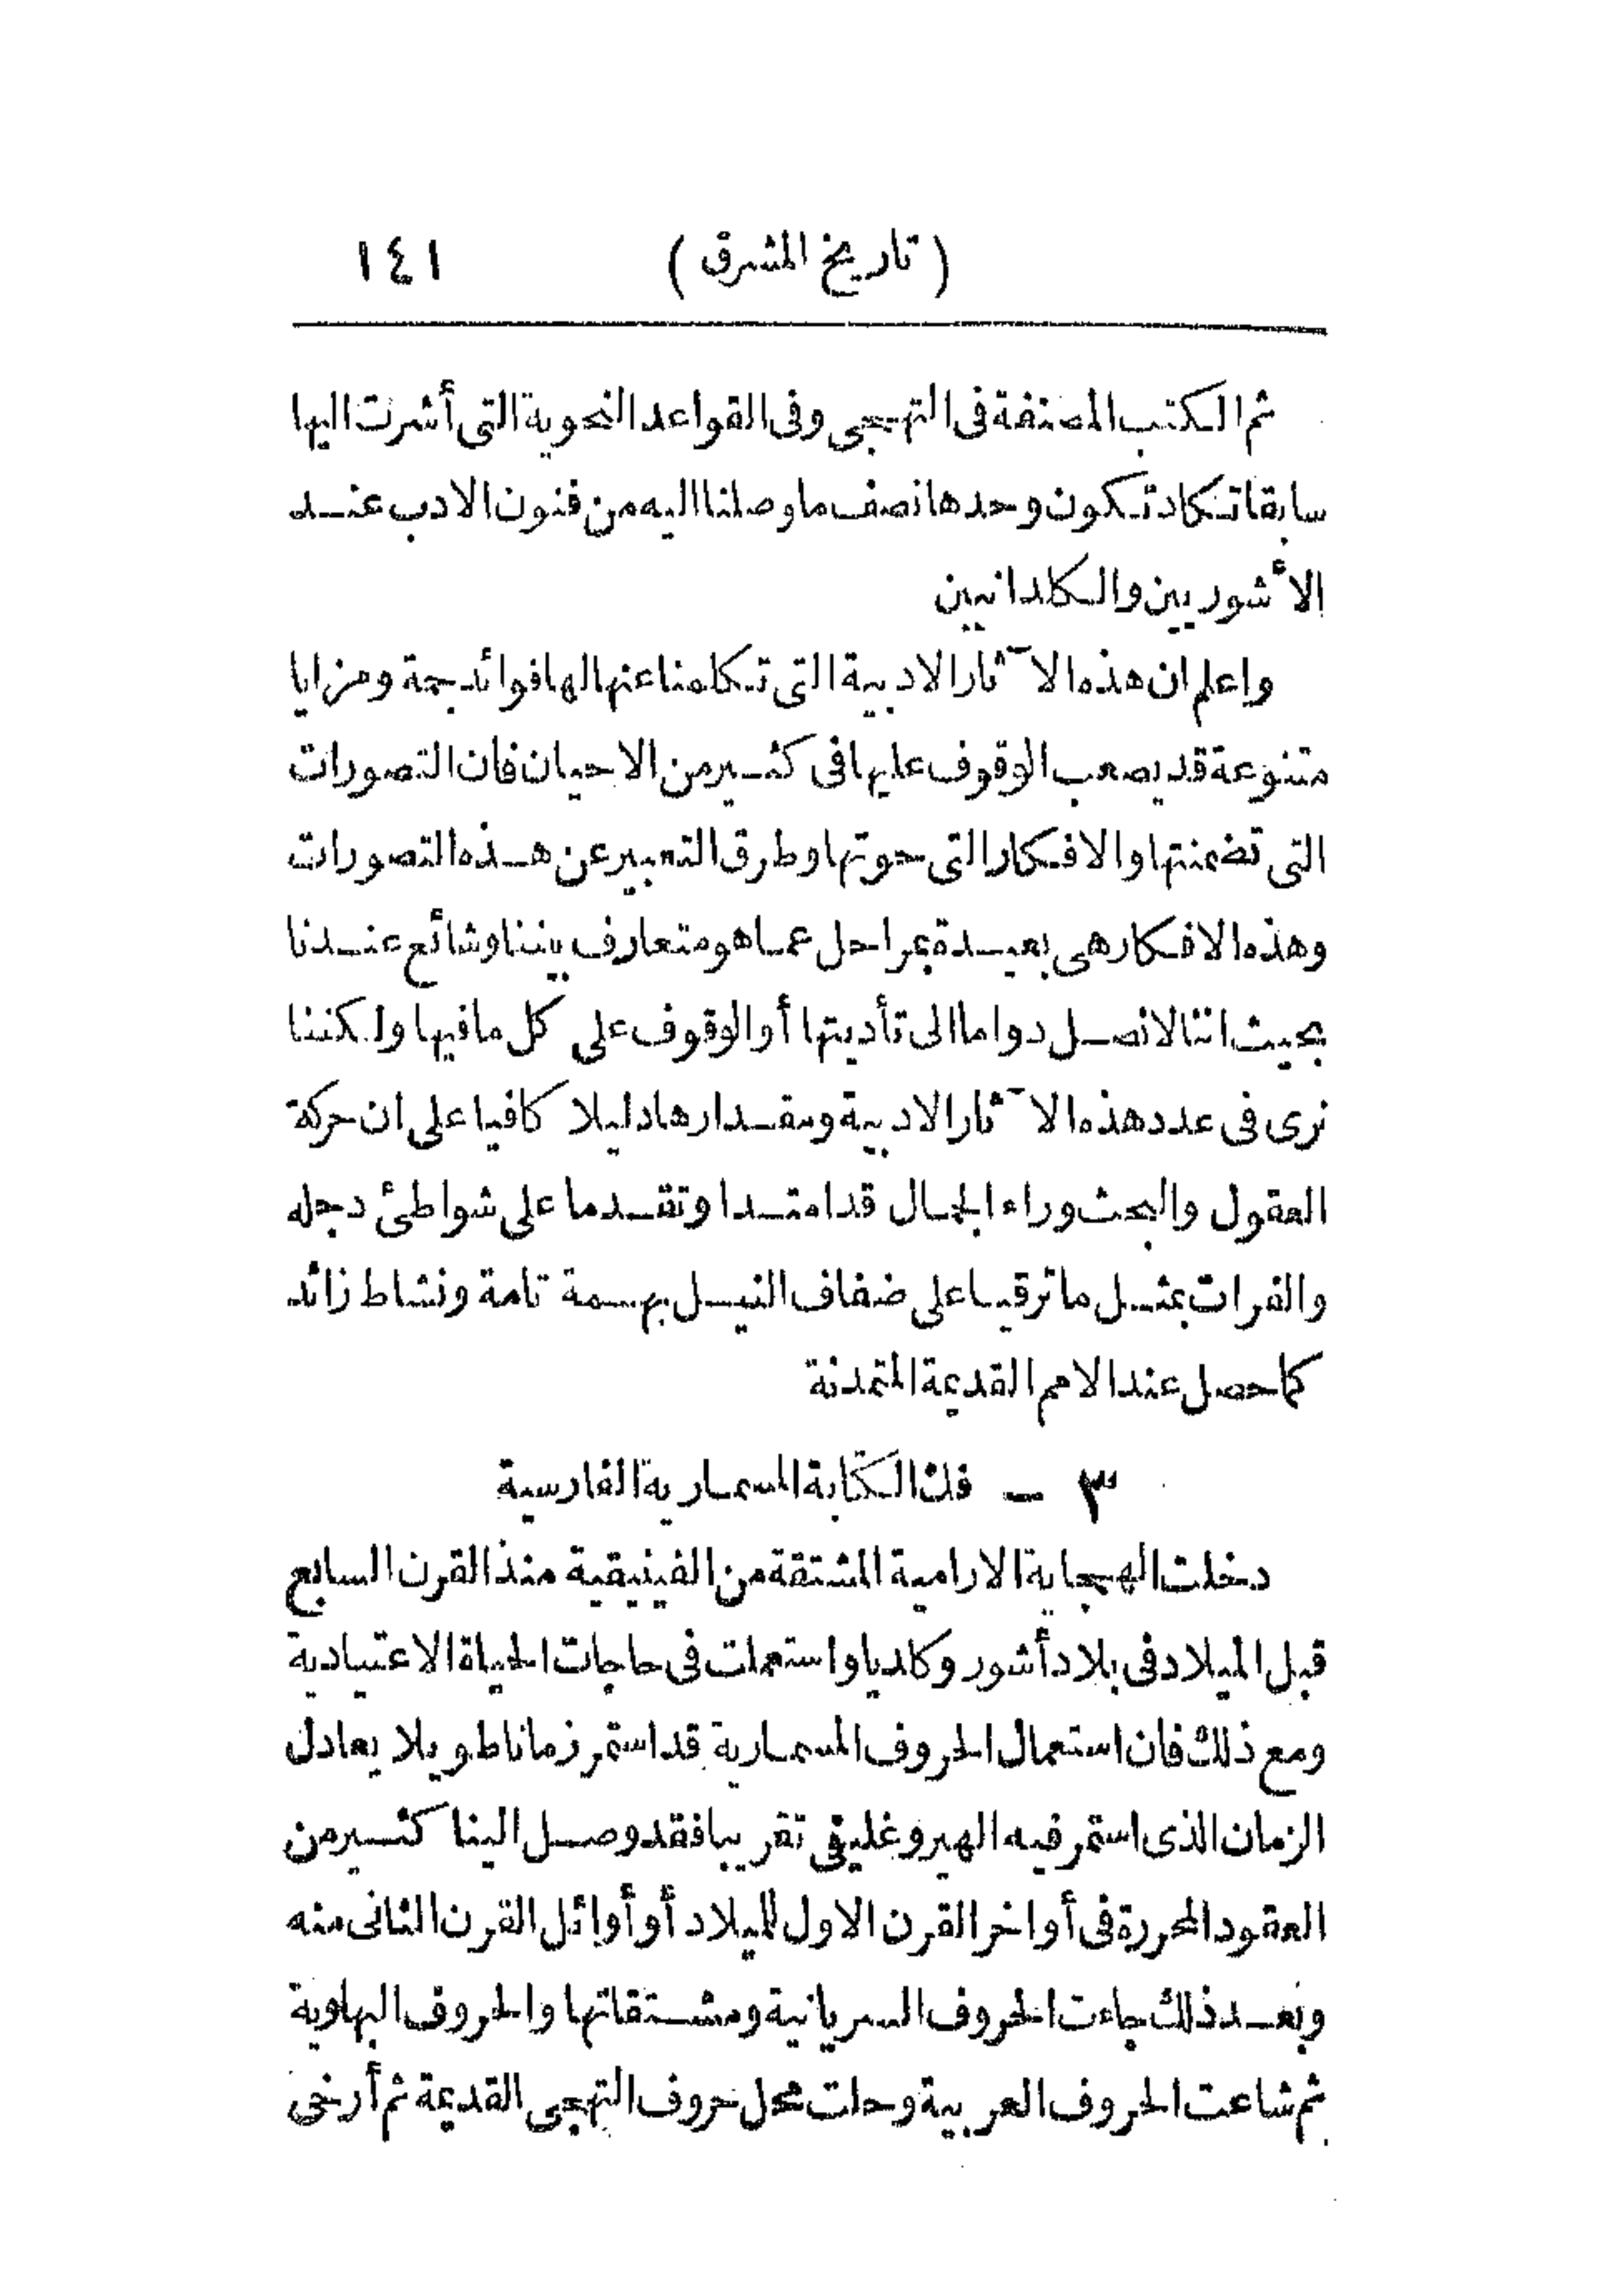 (تاريخ المشرق) ١٤١
ثم الكتب المصنفة فى التهجى وفى القواعد النحوية التى أشرت اليها
سابقا تكاد تكون وحدها نصف ما وصلنا اليه من فنون الادب عند
الأشوريين والكلدانيين
واعلم ان هذه الآثار الادبية التى تكلمنا عنها لها فوائد جمة ومزايا
متنوعة قد يصعب الوقوف عليها فى كثير من الاحيان فان التصورات
التى تضمنتها والافكار التى حوتها وطرق التعبير عن هذه التصورات
وهذه الافكار هى بعيدة بمراحل عما هو متعارف بيننا وشائع عندنا
بحيث اننا لا نصل دواما الى تأديتها أو الوقوف على كل ما فيها ولكننا
نرى فى عدد هذه الآثار الادبية ومقدارها دليلا كافيا على ان حركة
العقول والبحث وراء الجمال قد امتدا وتقدما على شواطئ دجله
والفرات بمثل ما ترقيا على ضفاف النيل بهمة تامة ونشاط زائد
كما حصل عند الامم القديمة المتمدنة
٣ - فك الكتابة المسمارية الفارسية
دخلت الهجاية الارامية المشتقة من الفينيقية منذ القرن السابع
قبل الميلاد فى بلاد أشور وكلديا واستعملت فى حاجات الحياة الاعتيادية
ومع ذلك فان استعمال الحروف المسمارية قد استمر زمانا طويلا يعادل
الزمان الذى استمر فيه الهيروغليفى تقريبا فقد وصل الينا كثير من
العقود المحررة فى أواخر القرن الاول للميلاد أو أوائل القرن الثانى منه
وبعد ذلك جاءت الحروف السريانية ومشتقاتها والحروف البهلوية
ثم شاعت الحروف العربية وحلت محل حروف التهجى القديمة ثم أرخى